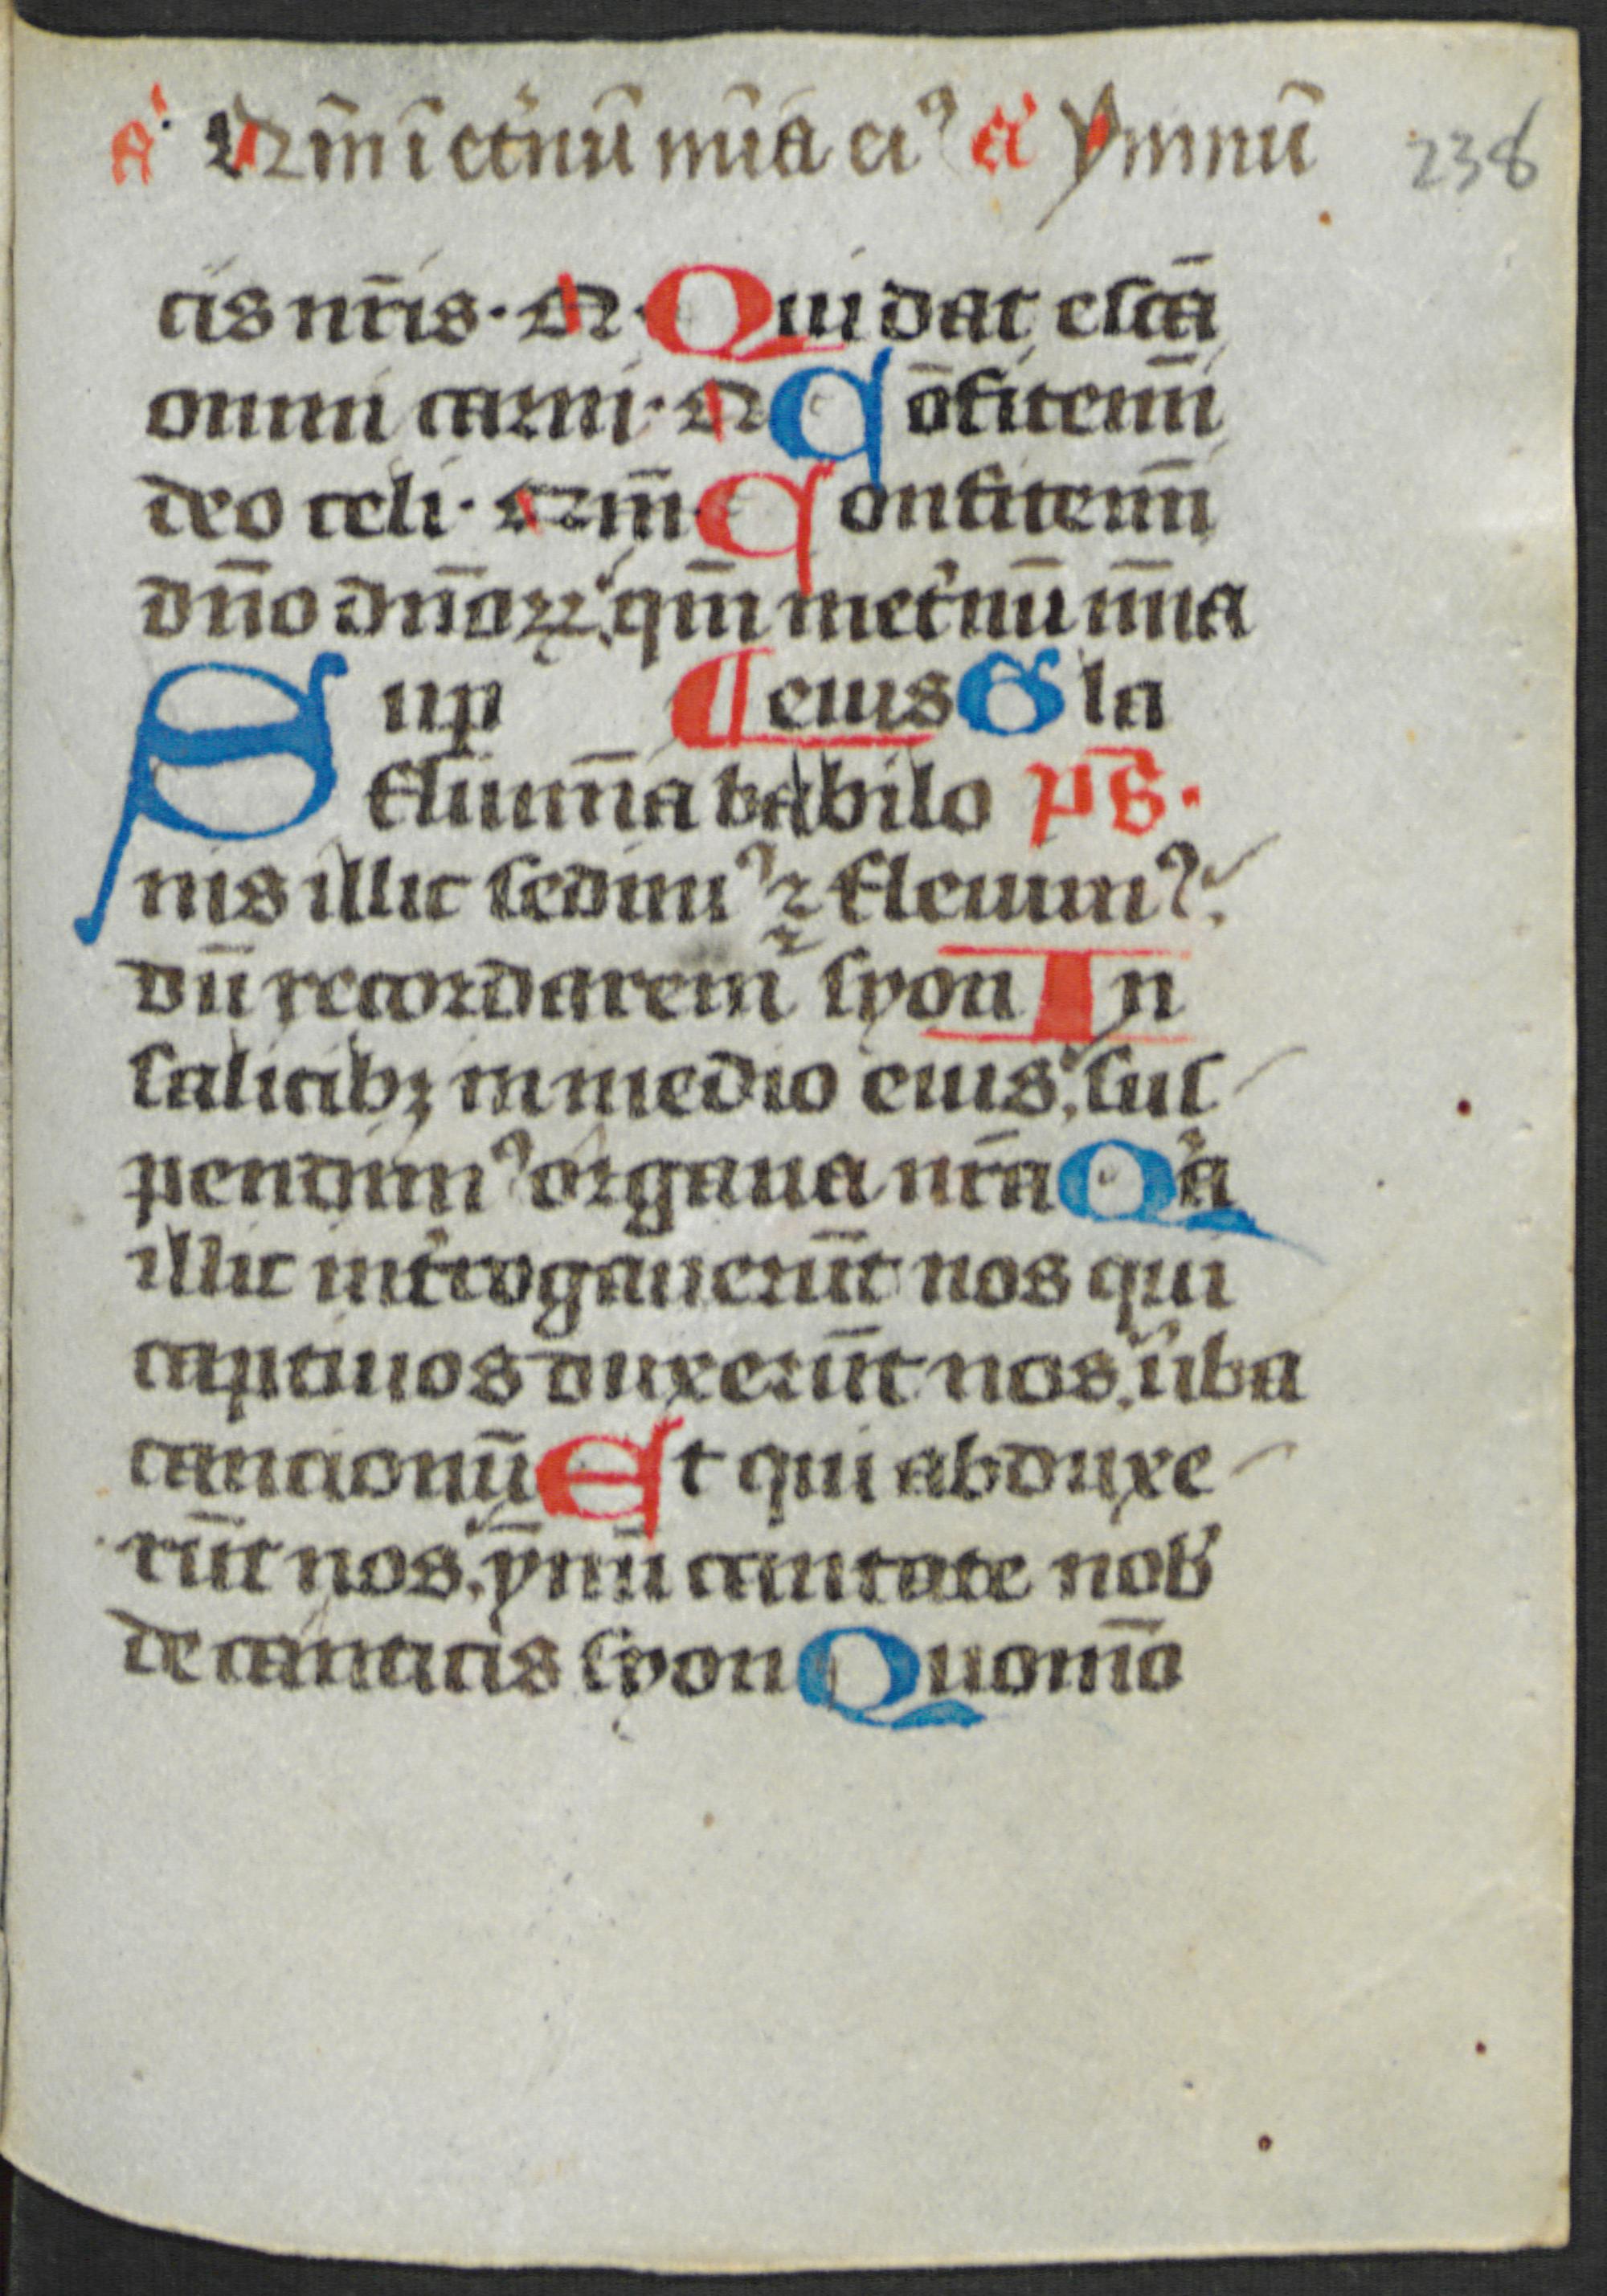 a Qm̄ ī et̉nū mīa eiꝰ a ymnū 238
cis nr̄is · Q · Qui dat escā
omni carni · Q Cōfitemī
deo celi · Qm̄ Confitemī
dn̄o dn̄oꝝ qm̄ in et̉nū mīa
Suꝑ ¶ eius Gla
flumīa babilo ps̄.
nis illic sedimꝰ ⁊ fleuimꝰ
dū recordaremᷣ syon In
salicibꝫ in medio eius sus
pendimꝰ organa nr̄a Qͥa
illic int̉rogauerūt nos qui
captiuos duxerūt nos ūba
cancionū Et qui abduxe
rūt nos ymū cantate nob̉
de canticis syon Quomō